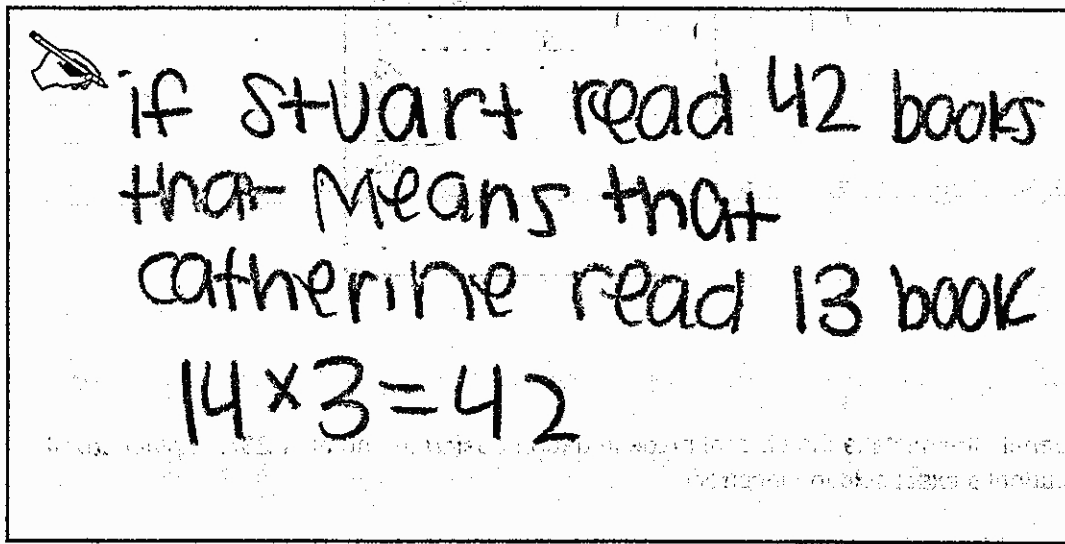 if Stuart read 42 books
that Means that
catherine read 13 book
14 × 3 = 42